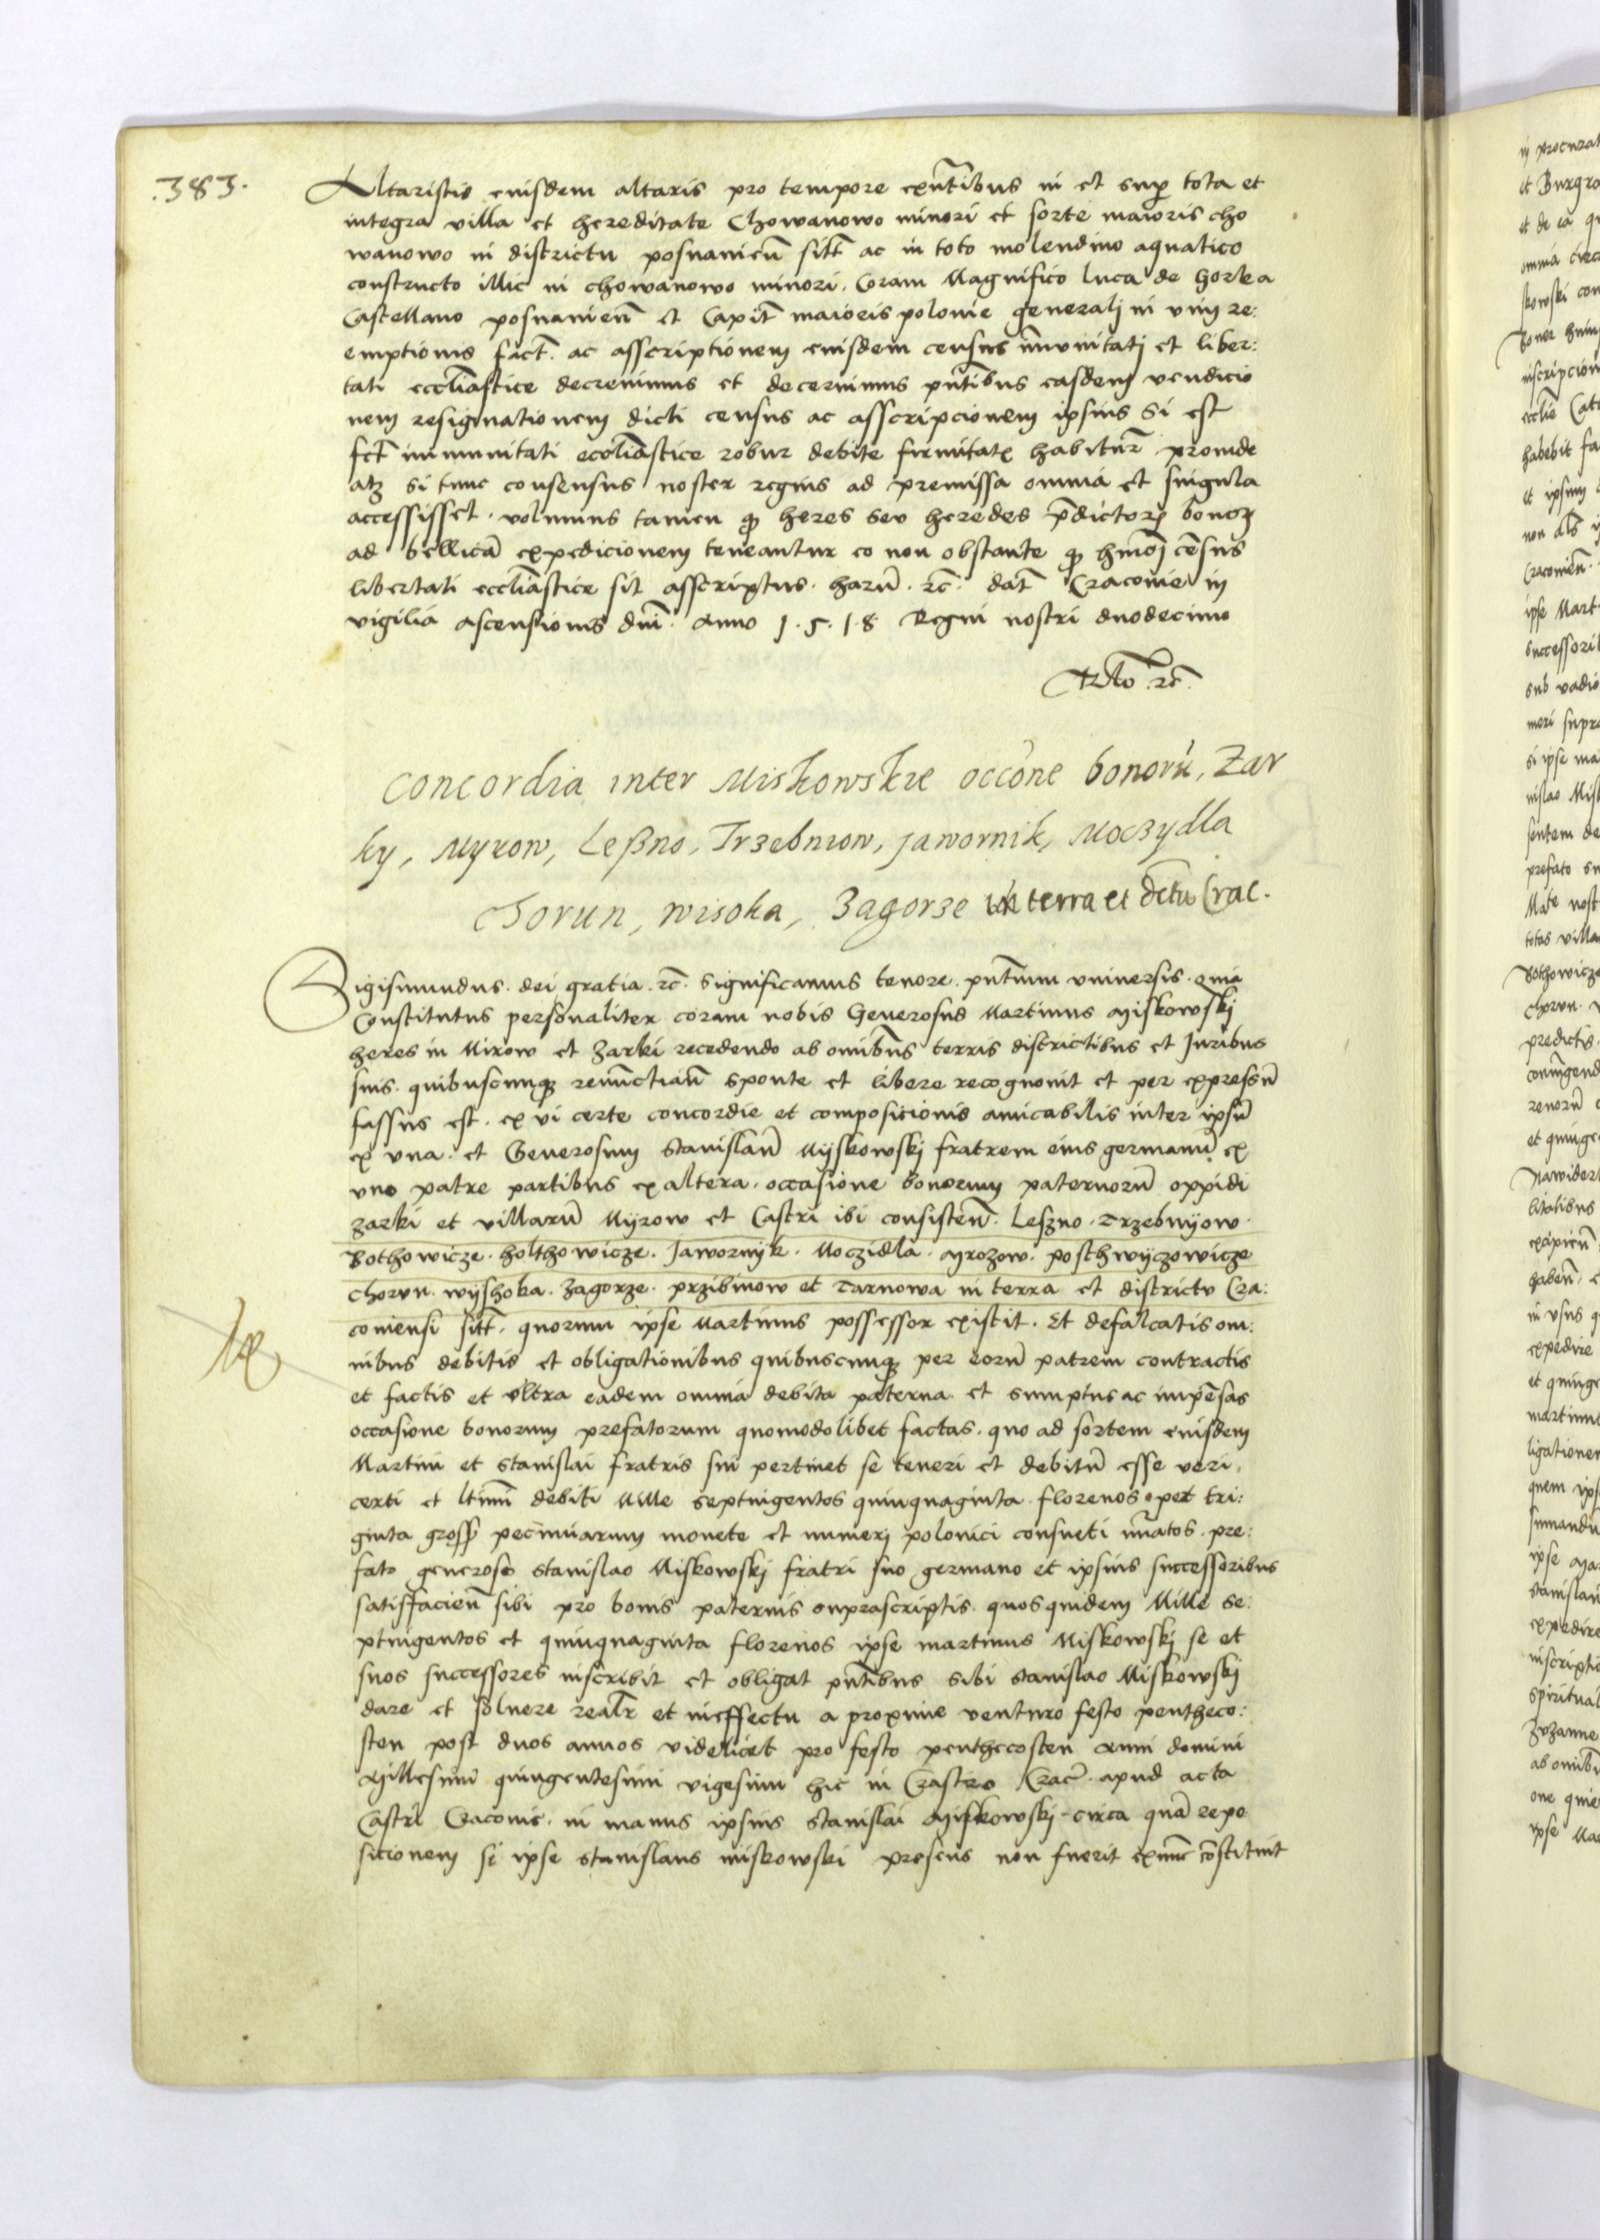 .383.
Altaristis eiusdem altaris pro tempore exñtibus in et sup tota et
integra villa et hereditate Chowanowo minori et sorte maioris cho
wanowo in districtu posnanieñ sitt ac in toto molendino aquatico
constructo illic in chowanowo minori. Coram Magnifico Luca de Gorka
Castellano posnanieñ et Capit maioris polonie generalj in vim re:
emptionis fact. ac asscriptionem eiusdem census imunitatj et liber:
tati eccliastice decreuimus et decernimus pñtibus easdem vendicio
nem resignationem dicti census ac asscripcionem ipsius si est
fct immunitati eccliastice robur debite firmitatis habitur proinde
atz si tunc consensus noster regius ad premissa omnia et singula
accessisset. volumus tamen q heres seu heredes pdictorz bonorz
ad bellica expedicionem teneantur eo non obstante q hmoj cesus
libertati eccliastice sit asscriptus. haru. rc. dat Cracouie in
vigilia ascensionis dni. Anno 1.5.18 Regni nostri duodecimo
Rlo. rc.
Concordia inter Miskowskie occone bonoru, Zar
ky, Myrow, Leßno, Trzebniow, jawornik, Moczydla
Chorun, wisoka, Zagorze in terra et dctu Crac.
Sigismundus. dei gratia. rc. significamus tenore. pñtium vniuersis. quia
Constitutus personaliter coram nobis Generosus Martinus Miskowskj
heres in Mirow et Zarki recedendo ab omibus terris districtibus et Juribus
suis. quibuscumq renunctian sponte et libere recognouit et per expressu
fassus est. ex vi certe concordie et composicionis amicabilis inter ipsu
ex vna. et Generosum Stanislau Myskowskj fratrem eius germanu ex
vno patre partibus ex altera. occasione bonorum paternoru oppidi
zarki et villaru Myrow et Castri ibi consisten. Leszno. Trzebnyow.
Bothowicze. holthowicze. Jawornyk. Moczidla. Mrozow. posthwyczowicze
Chorun. wyshoka. Zagorze. przibinow et Tarnowa in terra et districtu Cra:
couiensi sitt. quorum ipse Martinus possessor existit. Et defalcatis om:
nibus debitis et obligationibus quibuscumq per eoru patrem contractis
et factis et vltra eadem omnia debita paterna. et sumptus ac impesas
occasione bonorum prefatorum quomodolibet factas. quo ad sortem eiusdem
Martini et Stanislai fratris sui pertinet se teneri et debitu esse veri.
certi et ltimi debiti Mille septuigentos quinquaginta florenos per tri:
ginta gross pecuniarum monete et numerj polonici consueti nuatos. pre:
fato generoso Stanislao Miskowskj fratri suo germano et ipsius successoribus
satisfacien sibi pro bonis paternis suprascriptis. quos quidem Mille se:
ptuigentos et quinquaginta florenos ipse martinus Miskowskj se et
suos successores inscribit et obligat pñtibus sibi Stanislao Miskowskj
dare et soluere realr et in effectu a proxime venturo festo pentheco:
sten post duos annos videlicet pro festo penthecosten Anni domini
Millesimi quingentesimi vigesimi hic in Castro Crac. apud acta
Castri Cracouie. in manus ipsius Stanislai Miskowskj. circa qua repo
sicionem si ipse Stanislaus miskowski presens non fuerit exnunc constituit